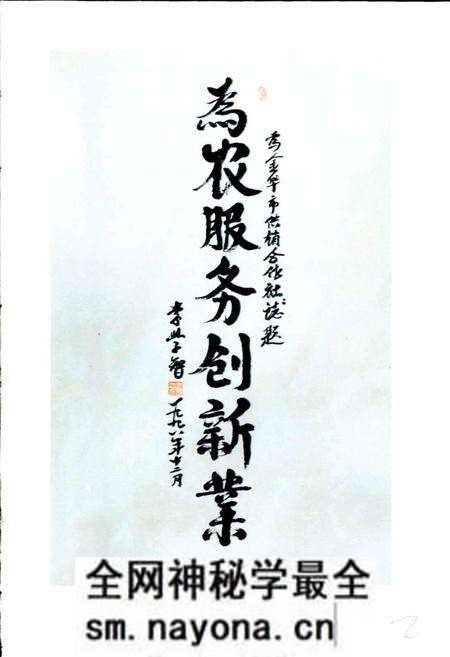 為金华市供销合作社誌题
為农服务创新業
一九九八年十二月
全网神秘学最全
sm.nayona.cn